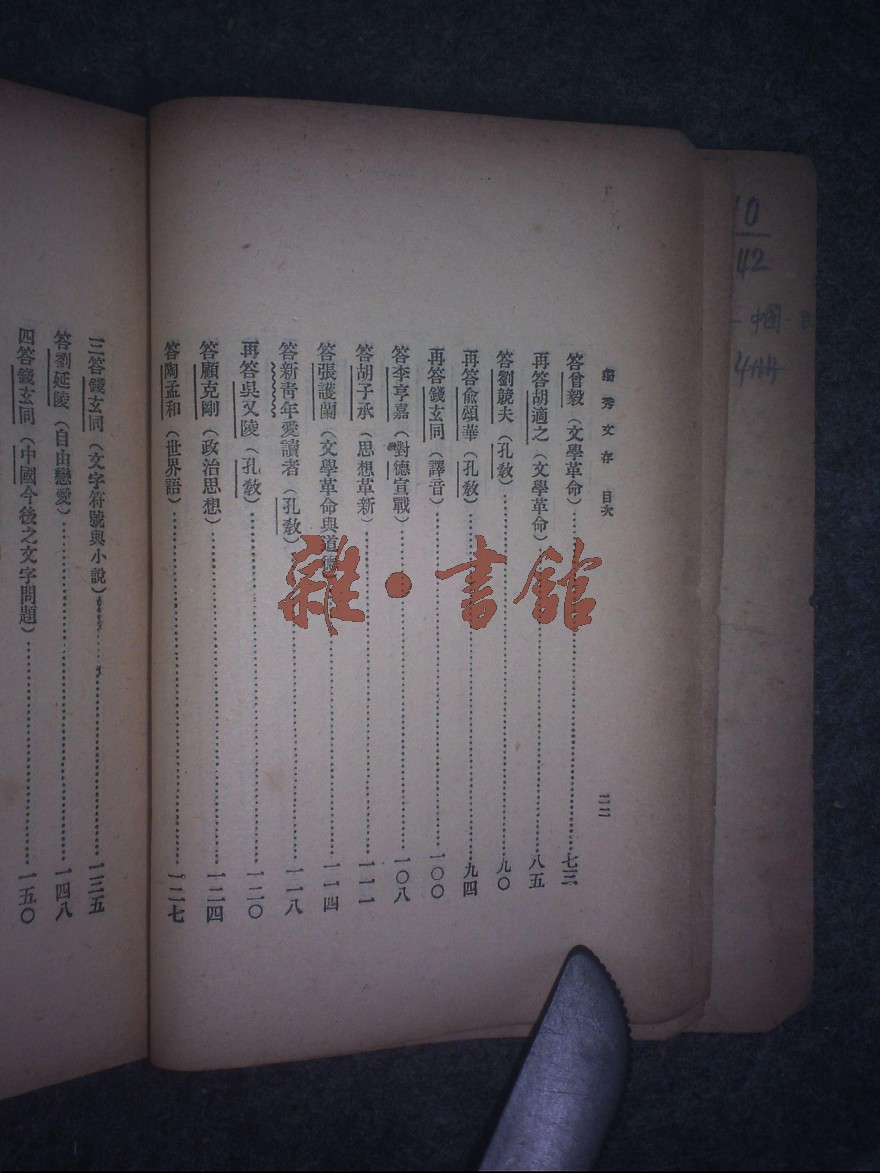 獨秀文存 目次 二二
答曾毅（文學革命）七三
再答胡適之（文學革命）八五
答劉競夫（孔敎）九〇
再答俞頌華（孔敎）九四
再答錢玄同（譯音）一〇〇
答李亨嘉（對德宣戰）一〇八
答胡子承（思想革新）一一一
答張護蘭（文學革命與道德 一一四
答新靑年愛讀者（孔敎）一一八
再答吳又陵（孔敎）一二〇
答顧克剛（政治思想）一二四
答陶孟和（世界語）一二七
三答錢玄同（文字符號與小說）一三五
答劉延陵（自由戀愛）一四八
四答錢玄同（中國今後之文字問題）一五〇
雜·書館
10
42
中国